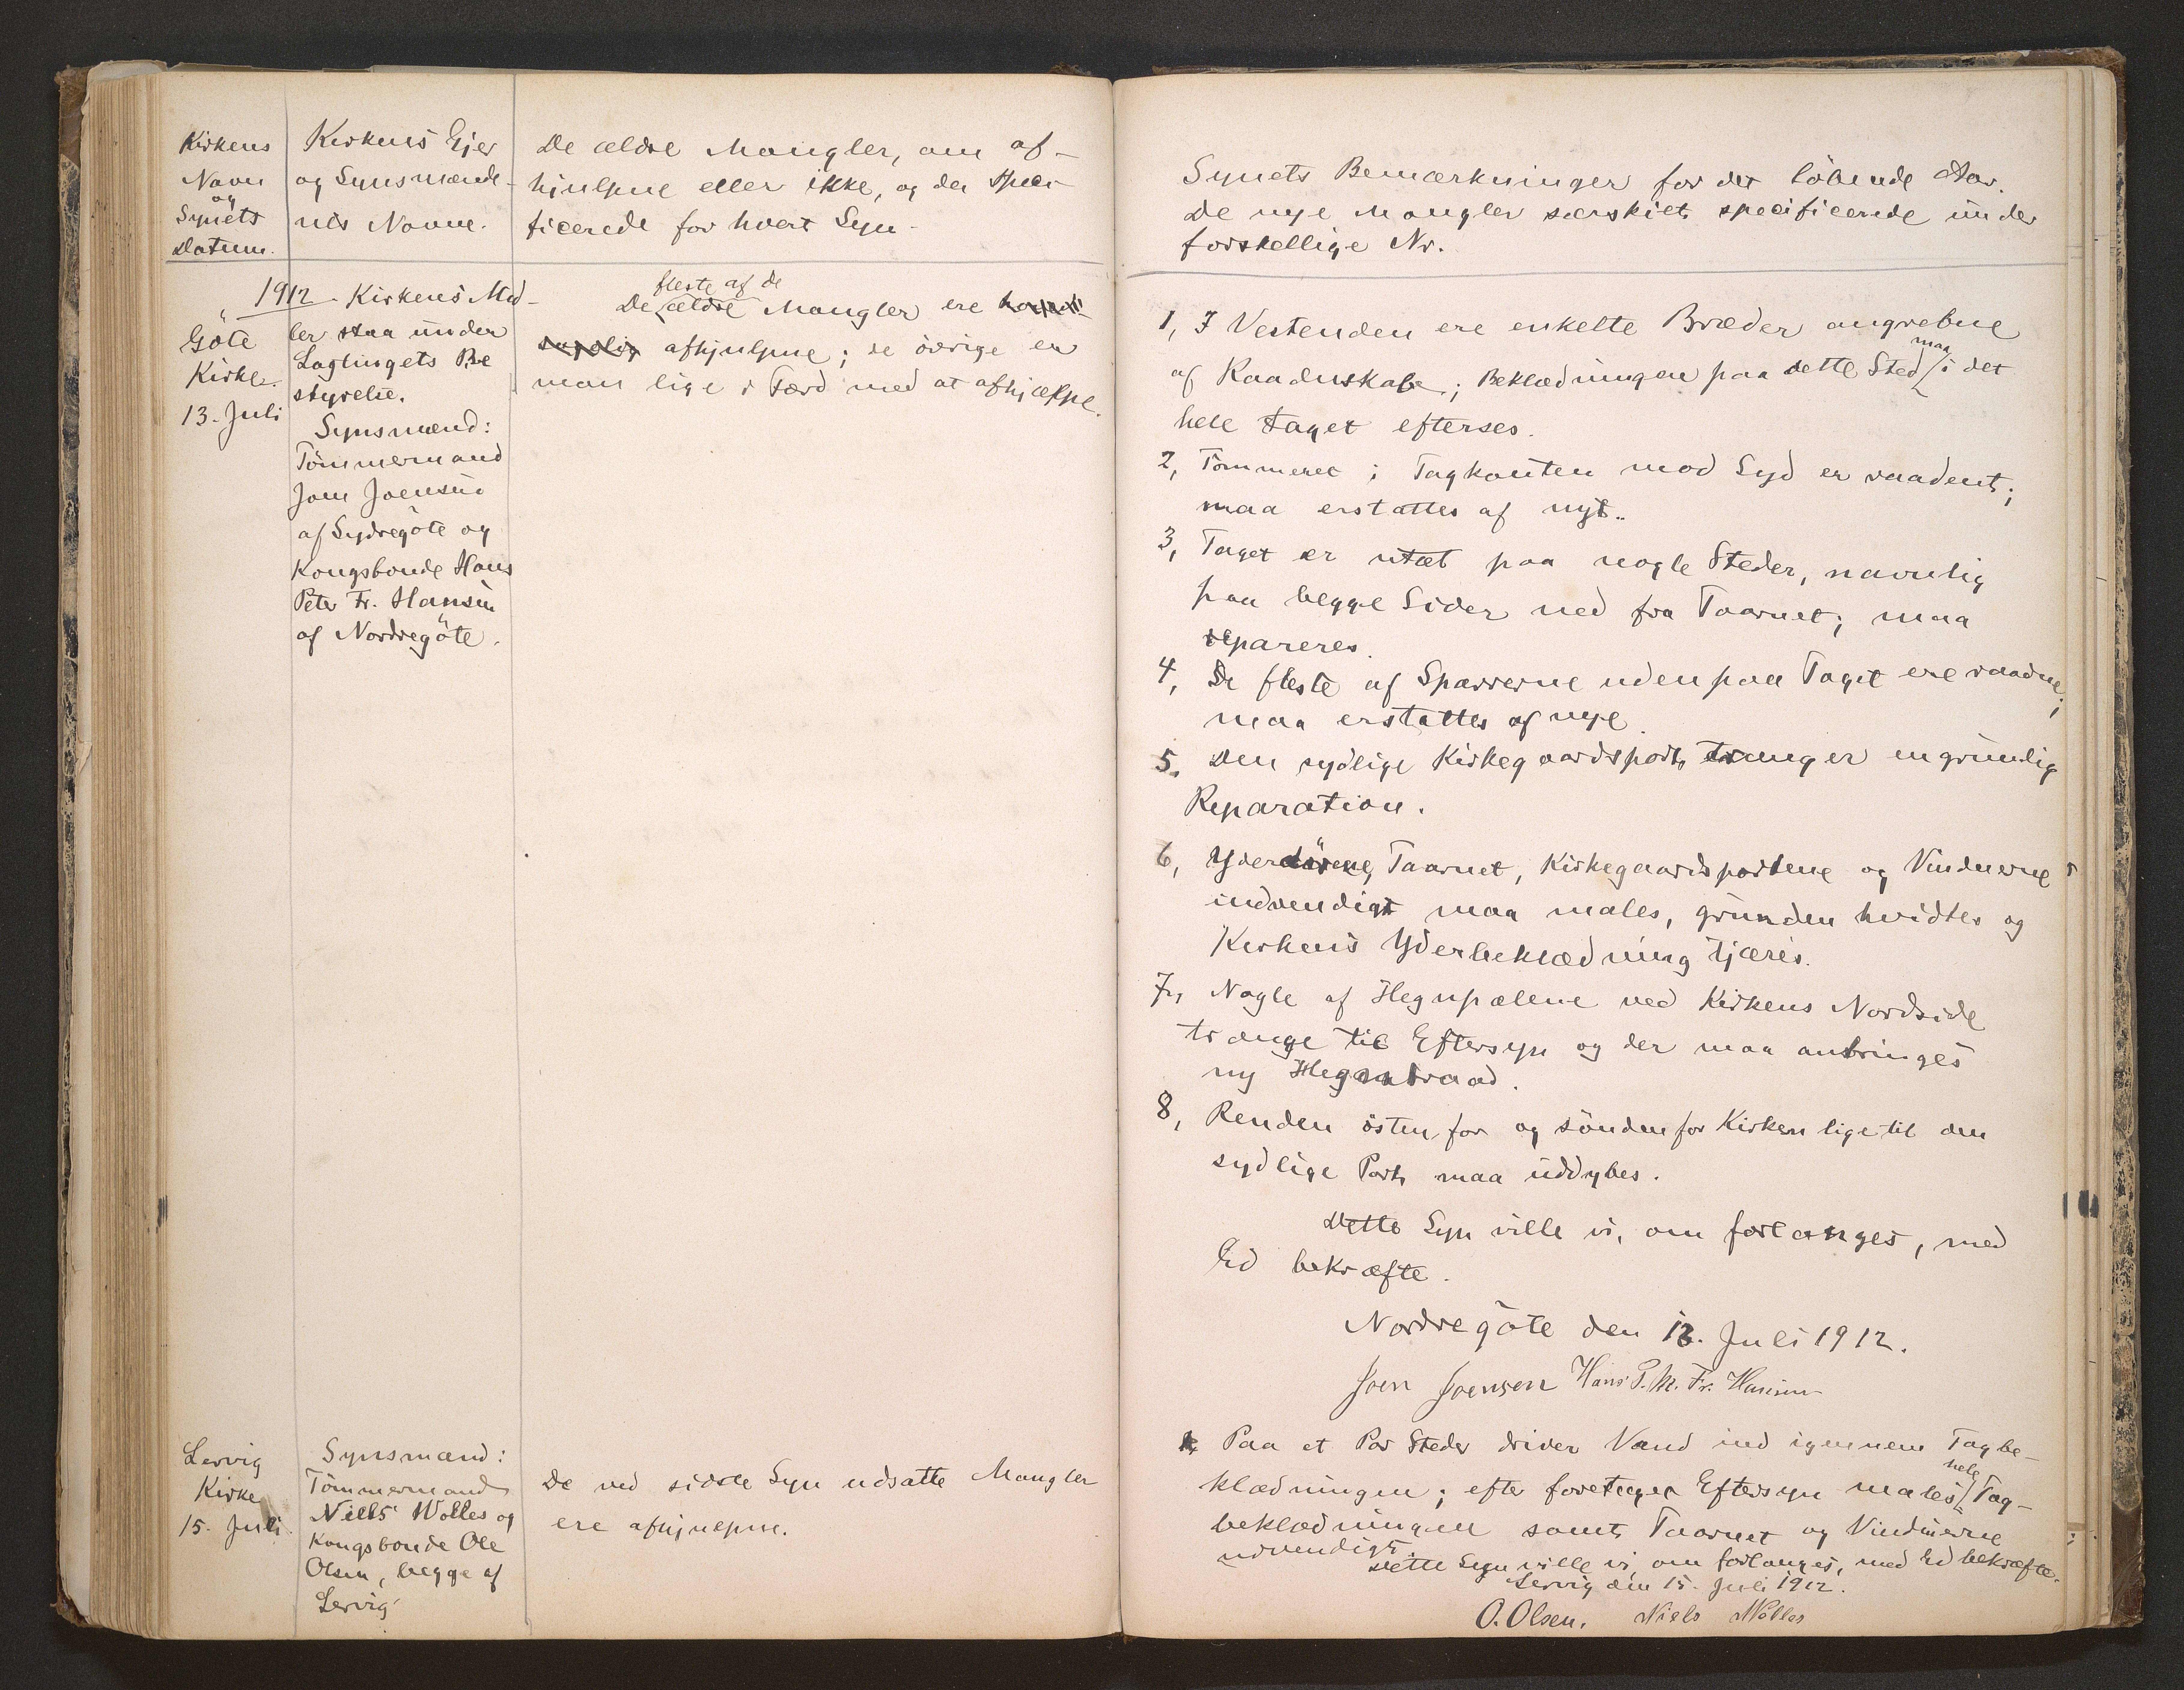 Kirkens
Navn
og
Synets
Datum.
Kirkens Ejer
og Synsmænde-
nes Navne.
De ældre Mangler, om af-
hjulpne eller ikke, og da speci-
ficerede for hvert Syn.
1912
Göte
Kirke.
13. Juli
Kirkens Mid-
ler staa under
Lagtingets Be
styrelse.
Synsmænd:
Tömmermand
Joen Joensen
af Sydregöte og
Kongsbonde Hans
Peter Fr. Hansen
af Nordregöte.
fleste af de
De ældre Mangler ere
afhjulpne; de övrige er
man lige i Færd med at afhjælpe.
Lervig
Kirke
15. Juli
Synsmænd:
Tömmermand
Niels Wolles og
Kongsbonde Ole
Olsen, begge af
Lervig
De ved sidste Syn udsatte Mangler
ere afhjulpne.
Synets Bemærkninger for det löbende Aar.
De nye Mangler særskilt specificerede under
forskellige Nr.
1, I Vestenden ere enkelte Bræder angrebne
af Raadenskab; Beklædningen paa dette Sted maa i det
hele taget efterses.
2, Tömmeret i Tagkanten mod Syd er raadent;
maa erstattes af nyt.
3, Taget er utæt paa nogle Steder, navnlig
paa begge Sider ned fra Taarnet; maa
repareres.
4, De fleste af Sparrerne udenpaa Taget ere raadne;
maa erstattes af nye.
5. Den sydlige Kirkegaardsport trænger en grundig
Reparation.
6, Yderdörene, Taarnet, Kirkegaardsportene og Vinduerne
indvendigt maa males, grunden hvidtes og
Kirkens Yderbeklædning tjæres.
7, Nogle af Hegnpælene ved Kirkens Nordside
trænge til Eftersyn og der maa anbringes
ny Hegntraad.
8, Renden östenfor og söndenfor Kirken lige til den
sydlige Port maa uddybes.
Dette Syn ville vi, om forlanges, med
Ed bekræfte.
Nordregöte den 13. Juli 1912.
Joen Joensen Hans P. M. Fr. Hansen
1, Paa et Par Steder driver Vand ind igennem Tagbe-
klædningen; efter foretaget Eftersyn males hele Tag-
beklædningen samt Taarnet og Vinduerne
udvendigt.
Dette Syn ville vi, om forlanges, med Ed bekræfte.
Lervig den 15. Juli 1912.
O. Olsen. Niels Wolles